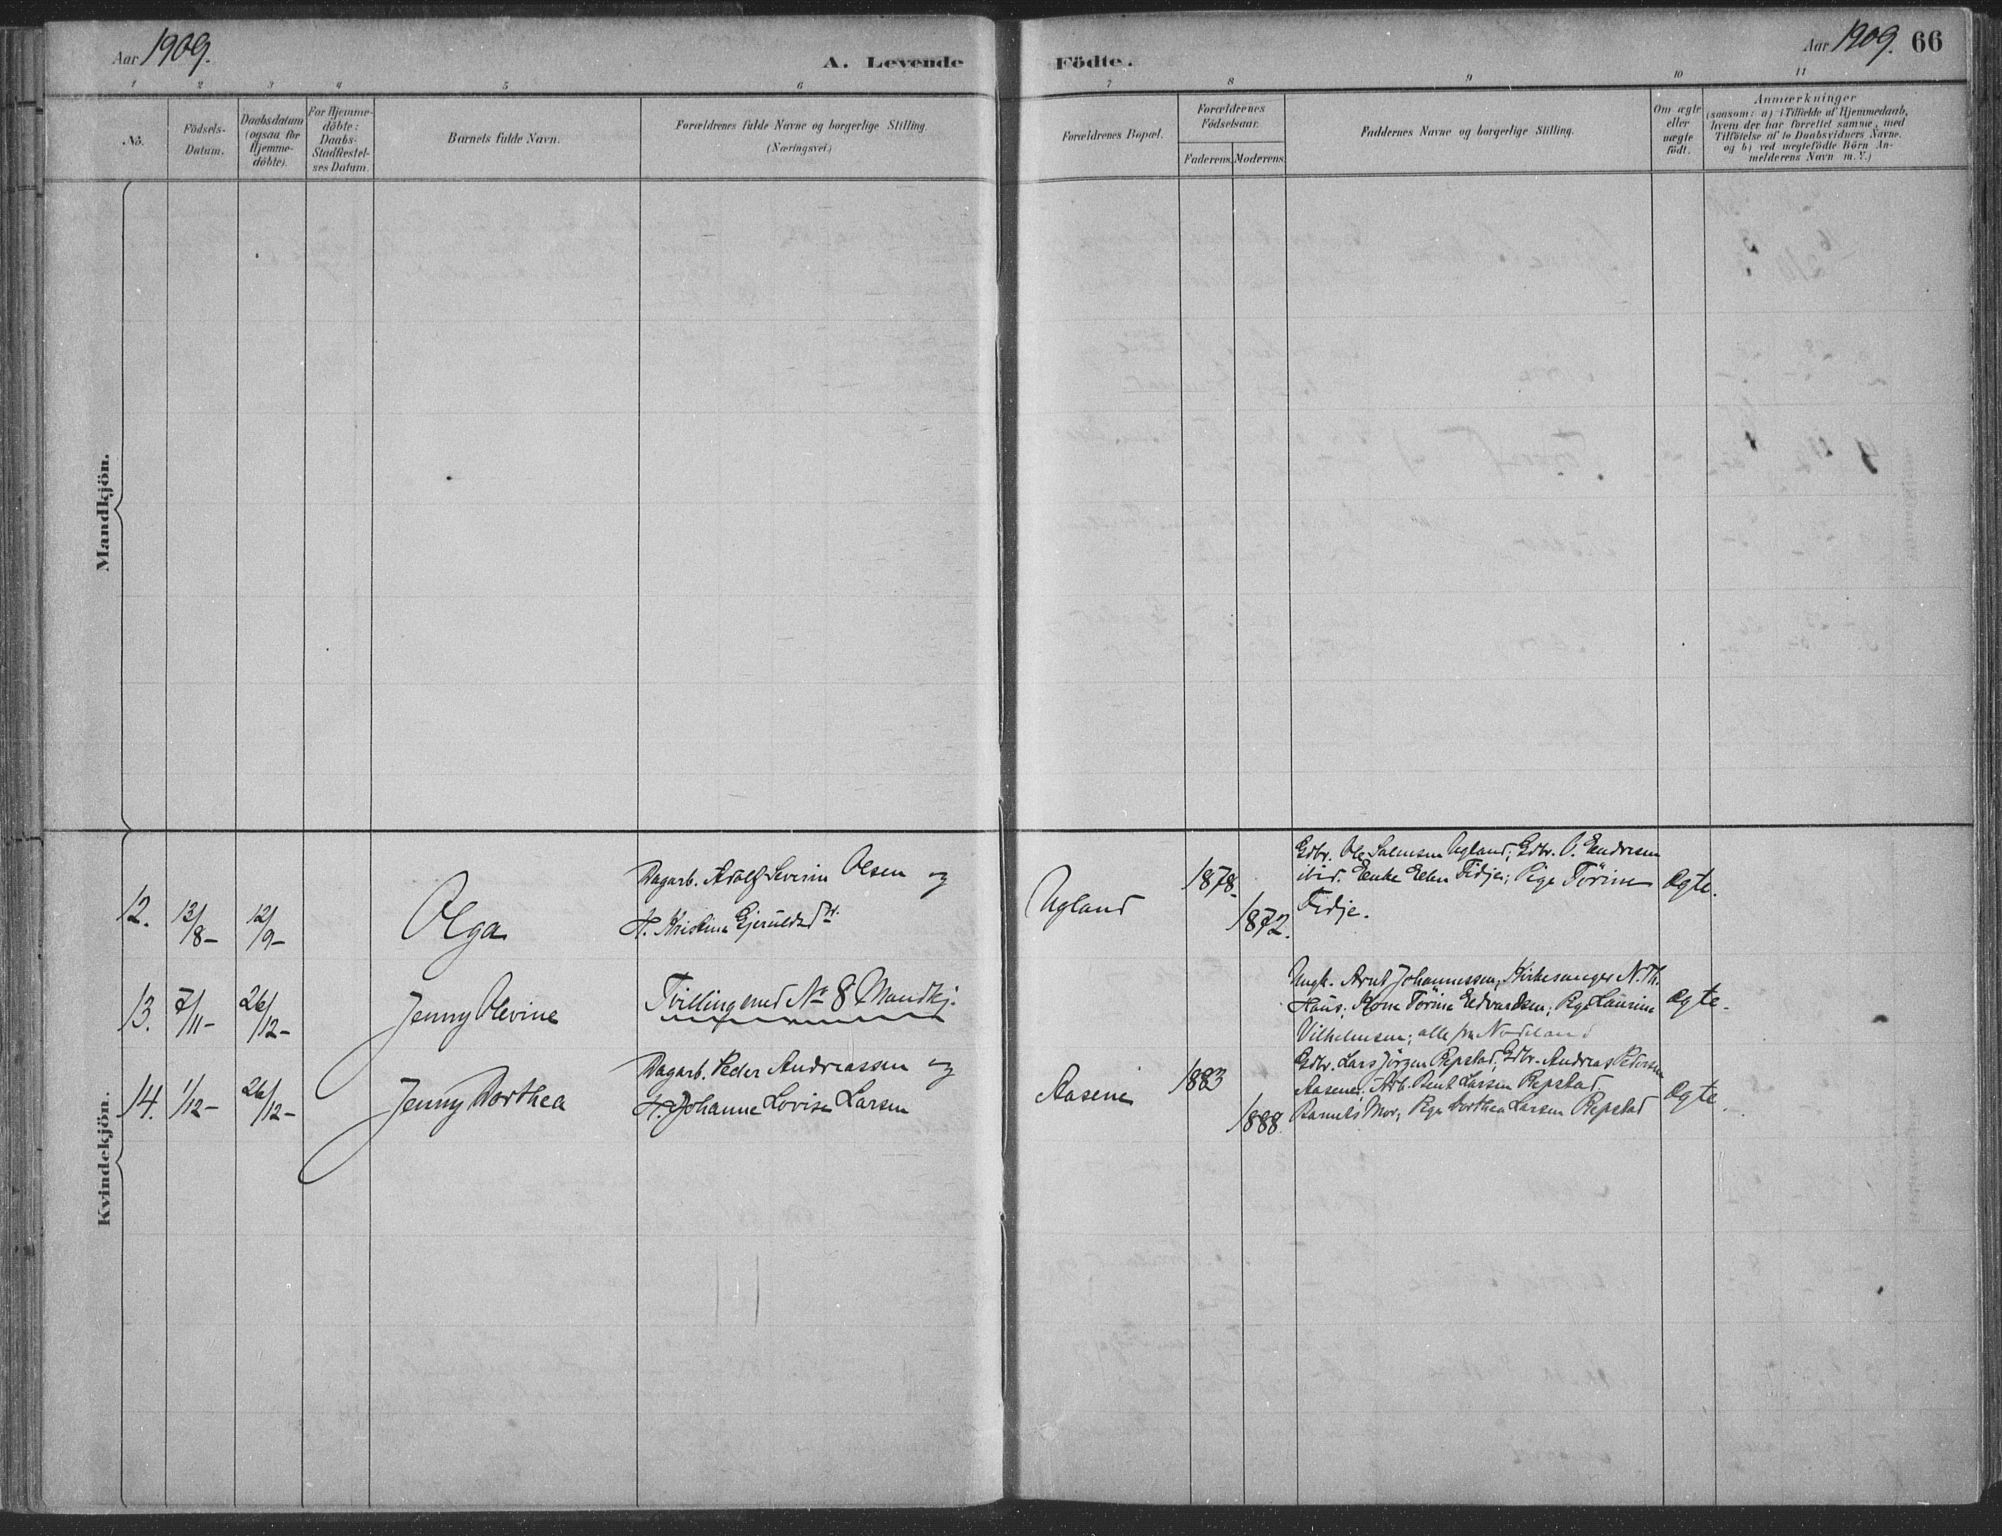 Aar 1909.
A. Levende
Födte.
Aar 1909. 66
1 2 3 4 5 6 7 8 9 10 11
No.
Födsels-
Datum.
Daabsdatum
(ogsaa for
Hjemme-
döbte).
For Hjemme-
döbte:
Daabs-
Stadfæstel-
ses Datum.
Barnets fulde Navn.
Forældrenes fulde Navne og borgerlige Stilling.
(Næringsvei)
Forældrenes Bopæl.
Forældrenes
Födselsaar.
Faderens. Moderens.
Faddernes Navne og borgerlige Stilling.
Om ægte
eller
uægte
født.
Anmærkninger
(saasom: a) i Tilfælde af Hjemmedaab,
hvem der har forrettet samme, med
Tilföielse af to Daabsvidners Navne.
og b) ved uægtefödte Börn An-
melderens Navn m. V.)
Mandkjön.
Kvindekjön.
12. 13/8- 12/9- Olga
Dagarb. Adolf Severin Olsen og
H. Kristine Gjeruldsd
Ugland
1878-
1872.
Gdbr. Ole Salmsen Ugland; Gdbr. O. Endresen
ibid. Enke Ellen Fidje; Pige Törine
Fidje.
Ægte.
13. 7/11- 26/12- Jenny Olevine
Tvilling med No 8 Mandkj.
Ungk. Arnt Johannessen, Kirkesanger N. Th.
Haus; Kone Törine Edvardsen; Pige Laurine
Vilhelmsen; alle fra Nodeland
Ægte.
14. 1/12- 26/12- Jenny Dorthea
Dagarb. Peder Andreassen og
H. Johanne Lovise Larsen
Aasene
1883
1888.
Gdbr. Lars Jörgen Repstad; Gdbr. Andreas Pedersen
Aasene; Arb. Bent Larsen Repstad.
Barnets Mor; Pige Dorthea Larsen Repstad
Ægte.